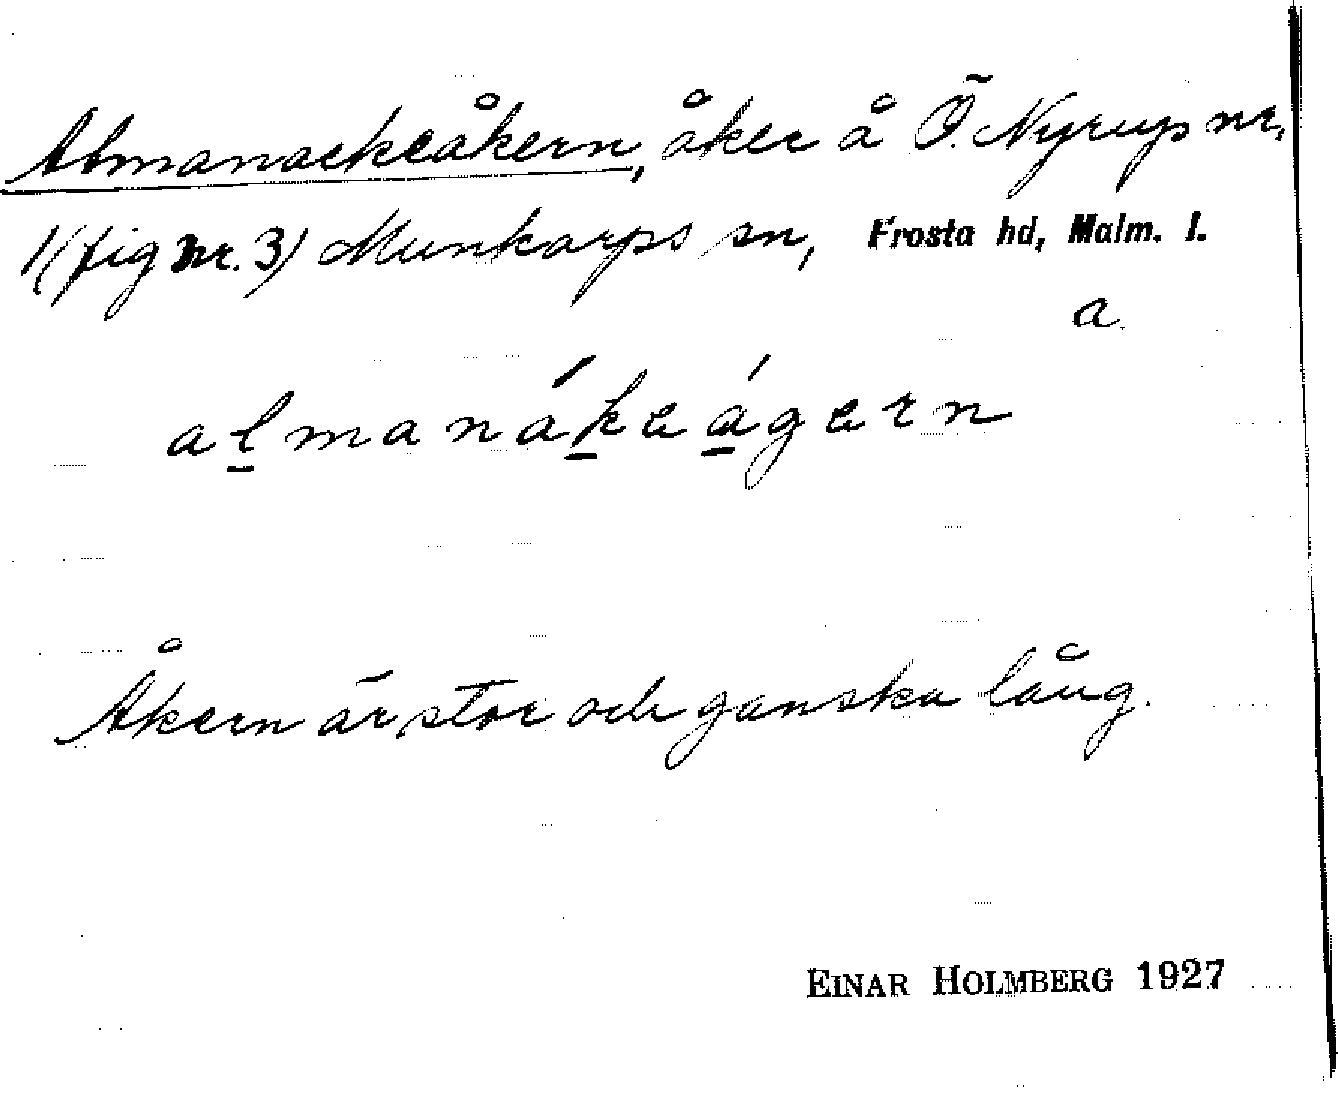 Almanackeåkern, åker å Ö. Nyrup nr.
1 (fig nr. 3) Munkarps sn, Frosta hd, Malm. l.
a
almanákeágern
Åkern är stor och ganska lång.
EINAR HOLMBERG 1927